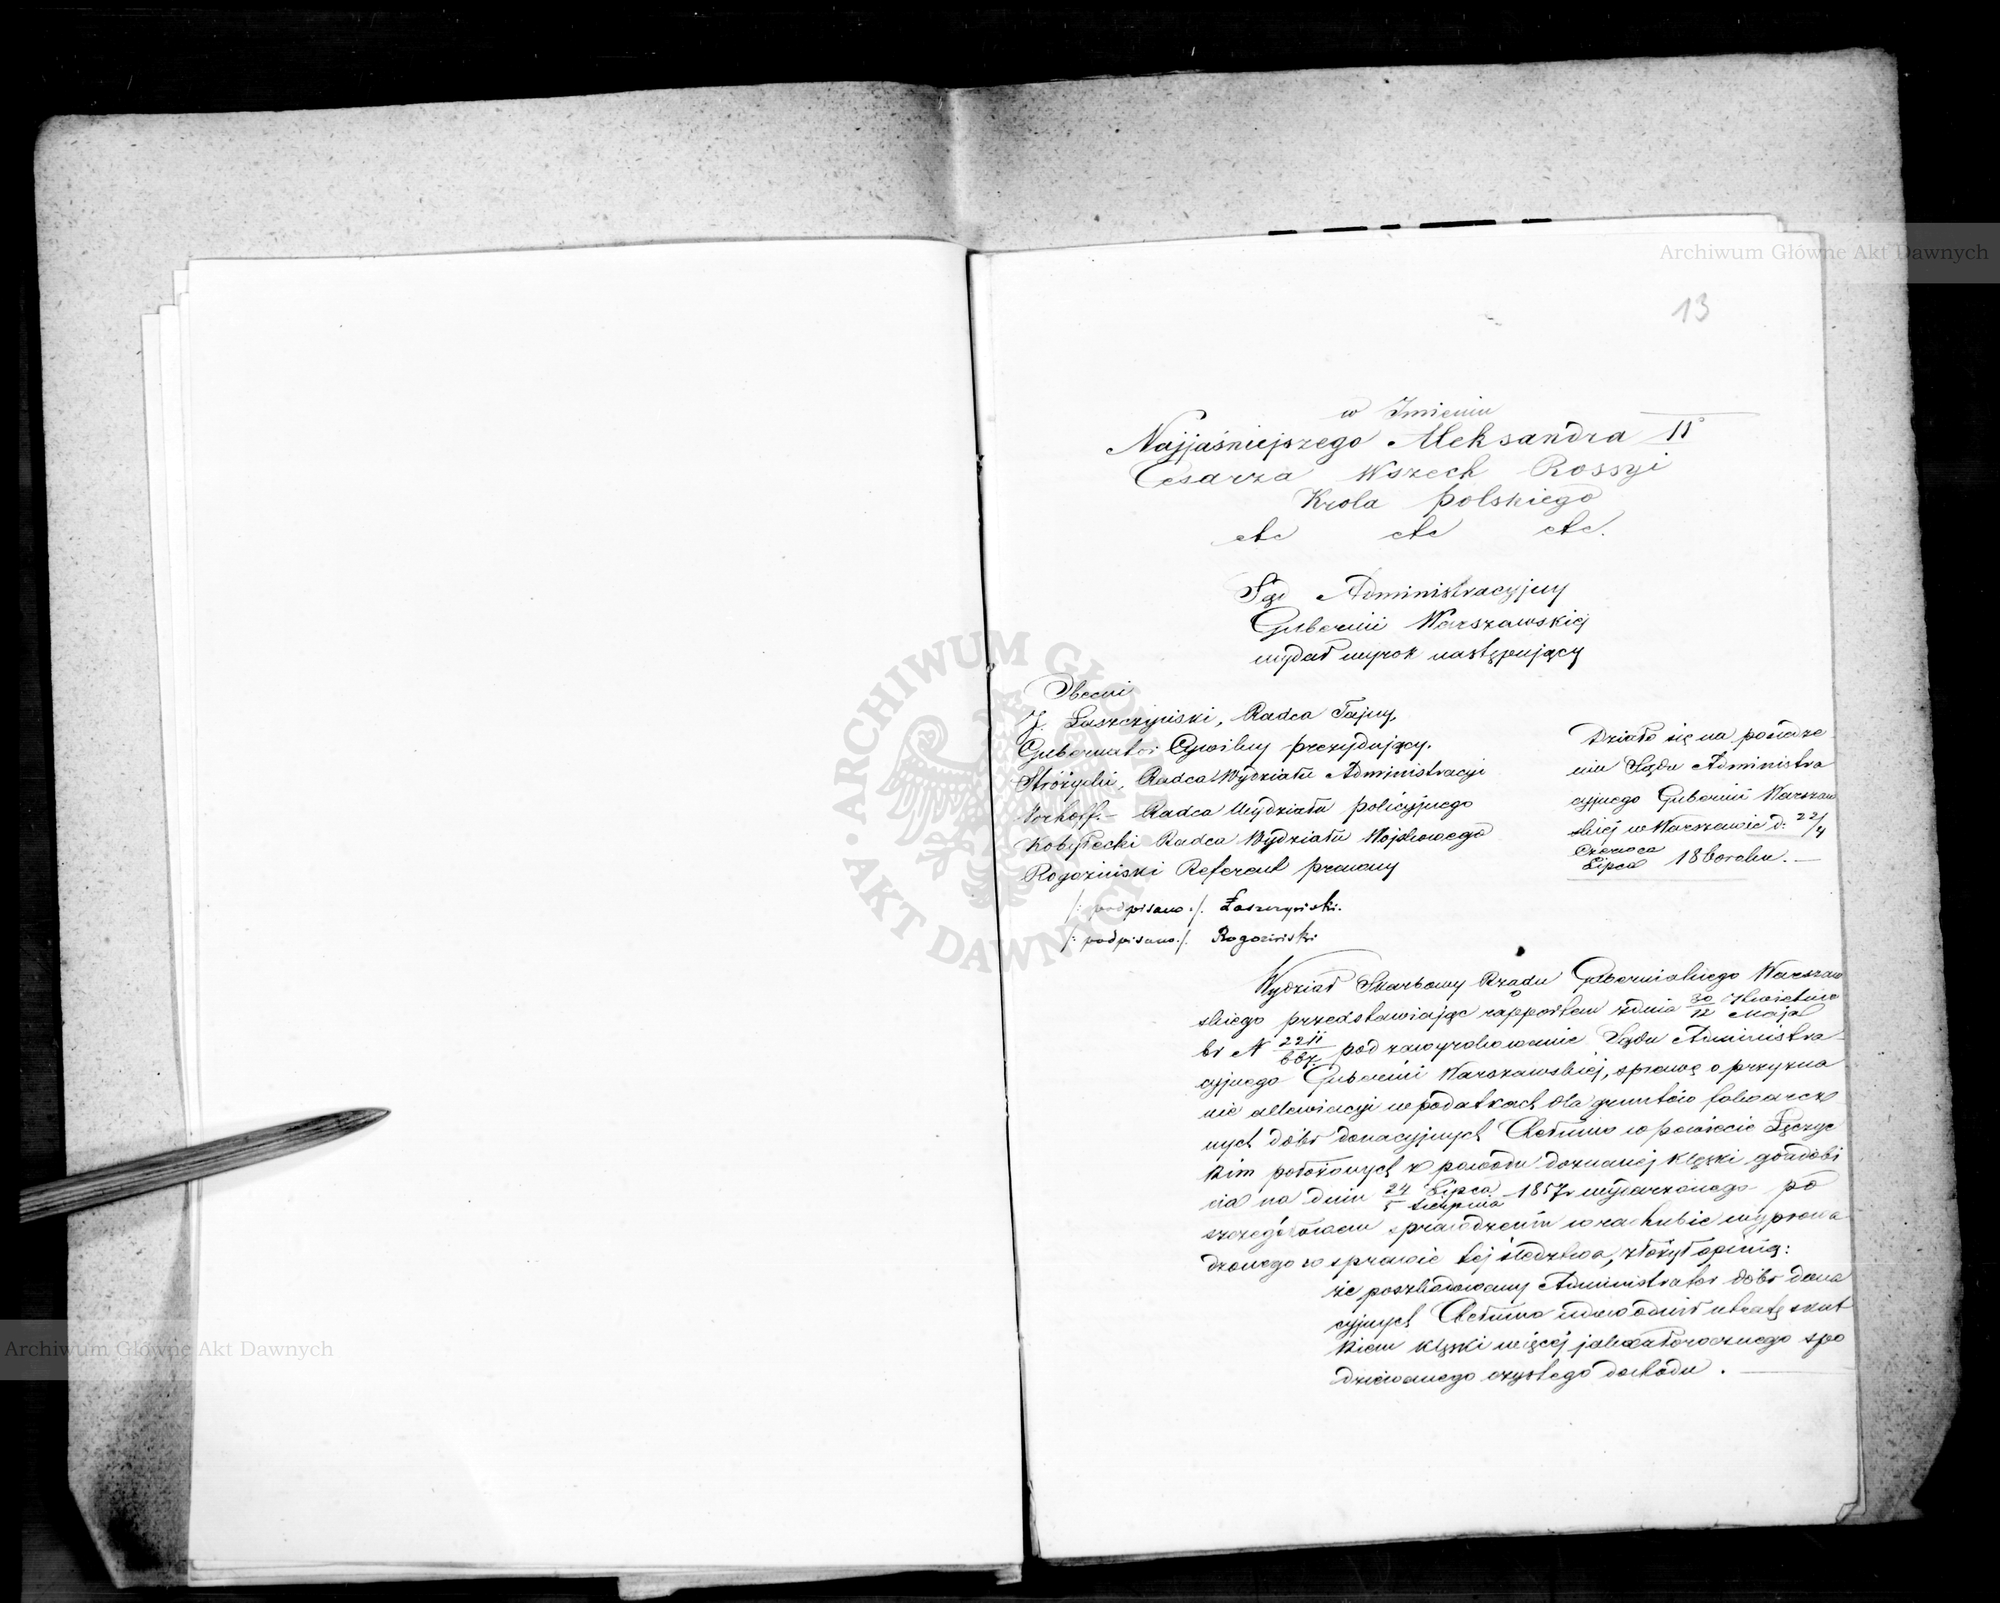 Archiwum Główne Akt Dawnych
13
w Imieniu
Najjaśniejszego Aleksandra II
Cesarza Wszech Rossyi
Krola Polskiego
etc etc etc.
Sąd Administracyjny
Gubernii Warszawskiej
wydał wyrok następujący
Obecni
J. Łaszczyński, Radca Tajny,
Gubernator Cywilny prezydujący.
Radca Wydziału Administracyi
Radca Wydziału Policyjnego
Kobyłecki Radca Wydziału Wojskowego
Rogoziński Referent prawny
/: podpisano :/. Łaszczyński.
/: podpisano :/. Rogoziński
Działo się na posiedze
niu Sądu Administra
cyjnego Gubernii Warszaw
skiej w Warszawie d: 22/4
Czerwca
Lipca 1860 roku. —
Wydział Skarbowy Rządu Gubernialnego Warszaw
skiego przedstawiając rapportem z dnia 30/12 Kwietnia/Maja
br N 2211/667 pod zawyrokowanie Sądu Administra
cyjnego Gubernii Warszawskiej, sprawę o przyzna
nie allewiacyi w podatkach dla gruntów folwarcz
nych dóbr donacyjnych Chełmno w powiecie Łęczyc
kim położonych z powodu doznanej klęski gradobi
cia na dniu 24/5 Lipca/Sierpnia 1857 r wydarzonego po
szczegółowem sprawdzeniu w rachubie wyprowa
dzonego w sprawie tej śledztwa, złożył opinię:
że poszkodowany Administrator dóbr dona
cyjnych Chełmno udowodnił utratę skut
kiem klęski więcej jak całorocznego spo
dziewanego czystego dochodu. —
Archiwum Główne Akt Dawnych
ARCHIWUM GŁÓWNE AKT DAWNYCH